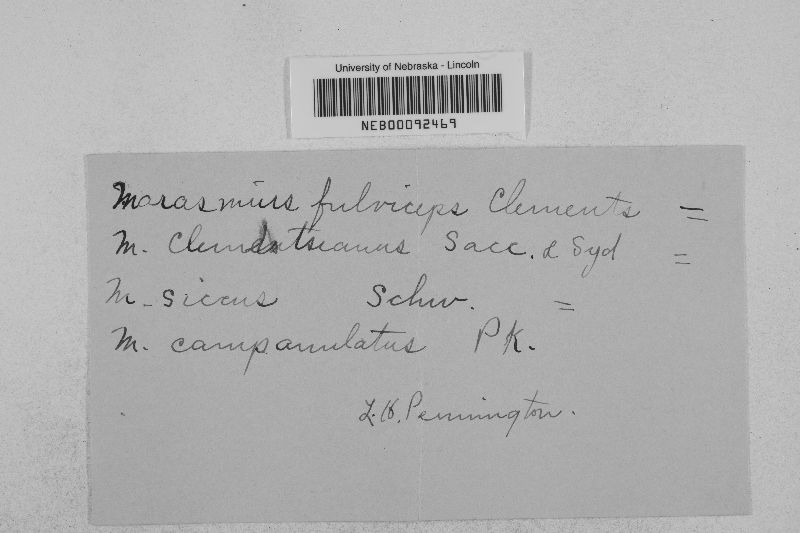 University of Nebraska - Lincoln
NEB00092469
Marasmius fulviceps Clements =
M. Clementsianus Sacc. & Syd =
M. siccus Schw. =
M. campanulatus PK.
L. H. Pennington.